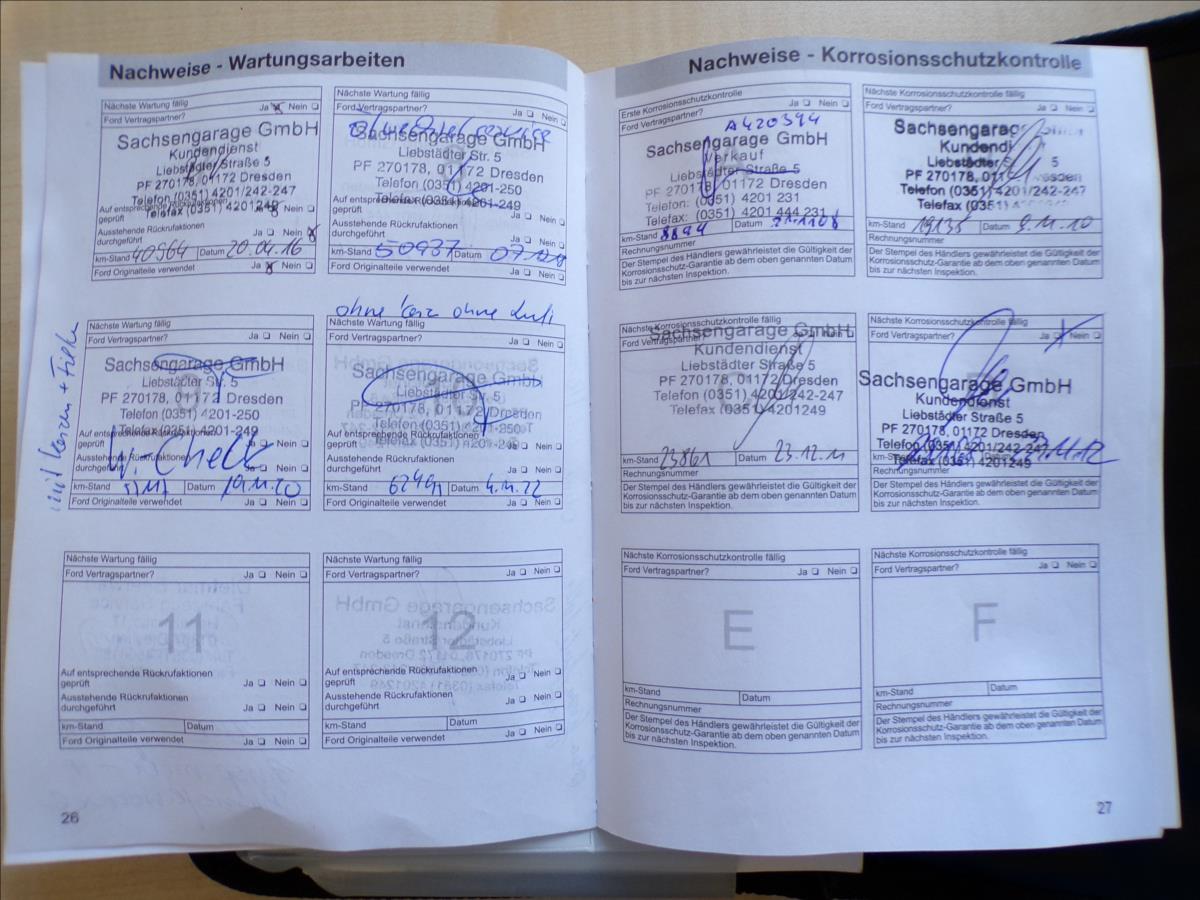 Nachweise - Wartungsarbeiten
Nächste Wartung fällig Ja Nein
Ford Vertragspartner?
Sachsengarage GmbH
Kundendienst
Liebstädter Straße 5
PF 270178, 01172 Dresden
Telefon (0351) 4201/242-247
Telefax (0351) 4201249
Auf entsprechende Rückrufaktionen
geprüft Ja Nein
Ausstehende Rückrufaktionen
durchgeführt Ja Nein
km-Stand 40964 Datum 20.04.16
Ford Originalteile verwendet Ja Nein
Nächste Wartung fällig
Ford Vertragspartner? Ja Nein
Sachsengarage GmbH
Liebstädter Str. 5
PF 270178, 01172 Dresden
Telefon (0351) 4201-250
Telefax (0351) 4201-249
Auf entsprechende Rückrufaktionen
geprüft Ja Nein
Ausstehende Rückrufaktionen
durchgeführt Ja Nein
km-Stand 50937 Datum
Ford Originalteile verwendet Ja Nein
Nächste Wartung fällig
Ford Vertragspartner? Ja Nein
Sachsengarage GmbH
Liebstädter Str. 5
PF 270178, 01172 Dresden
Telefon (0351) 4201-250
Telefax (0351) 4201-249
Auf entsprechende Rückrufaktionen
geprüft Ja Nein
U-Check
Ausstehende Rückrufaktionen
durchgeführt Ja Nein
km-Stand Datum 19.11.20
Ford Originalteile verwendet Ja Nein
mit Kerzen +
ohne Kerz ohne Luft
Nächste Wartung fällig
Ford Vertragspartner? Ja Nein
Sachsengarage GmbH
Liebstädter Str. 5
PF 270178, 01172 Dresden
Telefon (0351) 4201-250
Telefax (0351) 4201-249
Auf entsprechende Rückrufaktionen
geprüft Ja Nein
Ausstehende Rückrufaktionen
durchgeführt Ja Nein
km-Stand Datum 4.11.22
Ford Originalteile verwendet Ja Nein
Nächste Wartung fällig
Ford Vertragspartner? Ja Nein
11
Auf entsprechende Rückrufaktionen
geprüft Ja Nein
Ausstehende Rückrufaktionen
durchgeführt Ja Nein
km-Stand Datum
Ford Originalteile verwendet Ja Nein
Nächste Wartung fällig
Ford Vertragspartner? Ja Nein
12
Auf entsprechende Rückrufaktionen
geprüft Ja Nein
Ausstehende Rückrufaktionen
durchgeführt Ja Nein
km-Stand Datum
Ford Originalteile verwendet Ja Nein
26
Nachweise - Korrosionsschutzkontrolle
Erste Korrosionsschutzkontrolle
Ford Vertragspartner? Ja Nein
A420394
Sachsengarage GmbH
Verkauf
Liebstädter Straße 5
PF 270178, 01172 Dresden
Telefon: (0351) 4201 231
Telefax: (0351) 4201 444 231
km-Stand 8894 Datum
Rechnungsnummer
Der Stempel des Händlers gewährleistet die Gültigkeit der
Korrosionsschutz-Garantie ab dem oben genannten Datum
bis zur nächsten Inspektion.
Nächste Korrosionsschutzkontrolle fällig
Ford Vertragspartner? Ja Nein
Sachsengarage
Kundendi
Liebstädter 5
PF 270178, 01172 Dresden
Telefon (0351) 4201/242-247
Telefax (0351)
km-Stand 19135 Datum 9.11.10
Rechnungsnummer
Der Stempel des Händlers gewährleistet die Gültigkeit der
Korrosionsschutz-Garantie ab dem oben genannten Datum
bis zur nächsten Inspektion.
Nächste Korrosionsschutzkontrolle fällig
Ford Vertragspartner?
Sachsengarage GmbH
Kundendienst
Liebstädter Straße 5
PF 270178, 01172 Dresden
Telefon (0351) 4201/242-247
Telefax (0351) 4201249
km-Stand 23861 Datum 23.12.11
Rechnungsnummer
Der Stempel des Händlers gewährleistet die Gültigkeit der
Korrosionsschutz-Garantie ab dem oben genannten Datum
bis zur nächsten Inspektion.
Nächste Korrosionsschutzkontrolle fällig
Ford Vertragspartner? Ja Nein
Sachsengarage GmbH
Kundendienst
Liebstädter Straße 5
PF 270178, 01172 Dresden
Telefon (0351) 4201/242-247
Telefax (0351) 4201249
km-Stand
Rechnungsnummer
Der Stempel des Händlers gewährleistet die Gültigkeit der
Korrosionsschutz-Garantie ab dem oben genannten Datum
bis zur nächsten Inspektion.
Nächste Korrosionsschutzkontrolle fällig
Ford Vertragspartner? Ja Nein
E
km-Stand Datum
Rechnungsnummer
Der Stempel des Händlers gewährleistet die Gültigkeit der
Korrosionsschutz-Garantie ab dem oben genannten Datum
bis zur nächsten Inspektion.
Nächste Korrosionsschutzkontrolle fällig
Ford Vertragspartner? Ja Nein
F
km-Stand Datum
Rechnungsnummer
Der Stempel des Händlers gewährleistet die Gültigkeit der
Korrosionsschutz-Garantie ab dem oben genannten Datum
bis zur nächsten Inspektion.
27